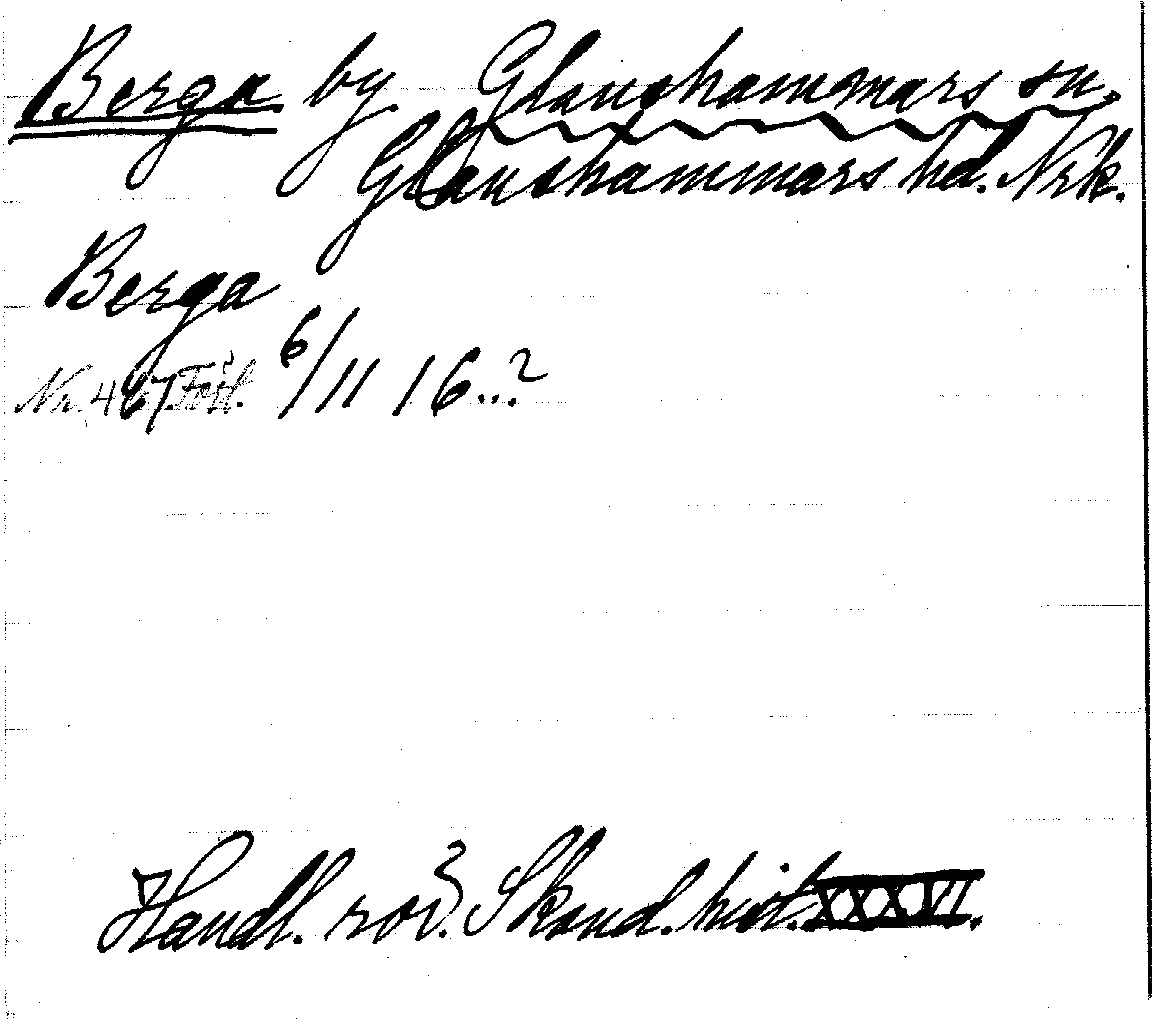 Berga by Glanshammars sn.
Glanshammars hd. Nrk.
Berga
Nr. 467 Fört. 6/11 16..?
Handl. rör. Skand. hist. XXXVI.